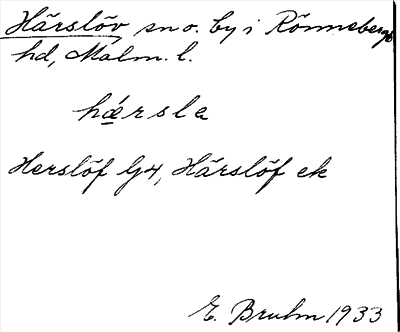 Härslöv sn o. by i Rönnebergs
hd, Malm. l.
hǽrsla
Herslöf G4, Härslöf ek
E. Bruhn 1933